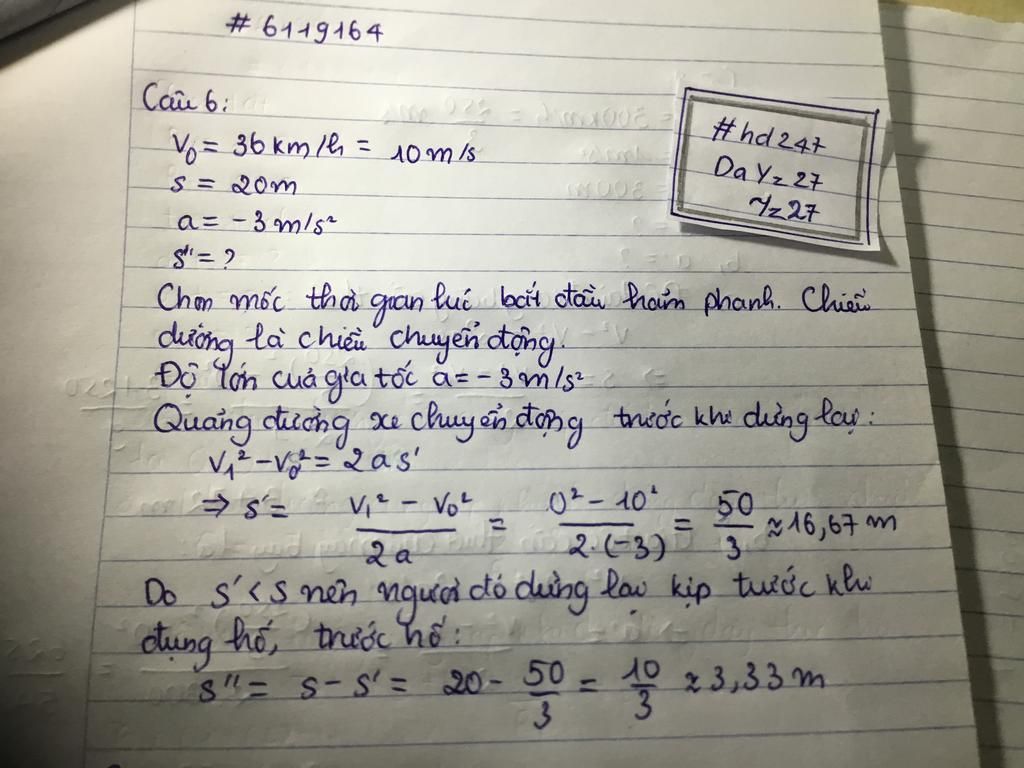 # 6119164
Câu 6:
V₀ = 36 km/h = 10 m/s
s = 20m
a = -3 m/s²
s" = ?
Chọn mốc thời gian lúc bắt đầu hãm phanh. Chiều
dương là chiều chuyển động.
Độ lớn cuả gia tốc a = -3 m/s²
Quảng đường xe chuyển động trước khi dừng lại:
V₁² - V₀² = 2as'
⇒ s' = (V₁² - V₀²)/(2a) = (0² - 10²)/(2.(-3)) = 50/3 ≈ 16,67 m
Do s' < s nên người đó dừng lại kịp trước khi
đụng hố, trước hố:
s'' = s - s' = 20 - 50/3 = 10/3 ≈ 3,33 m
#hd247
DaYz27
Yz27